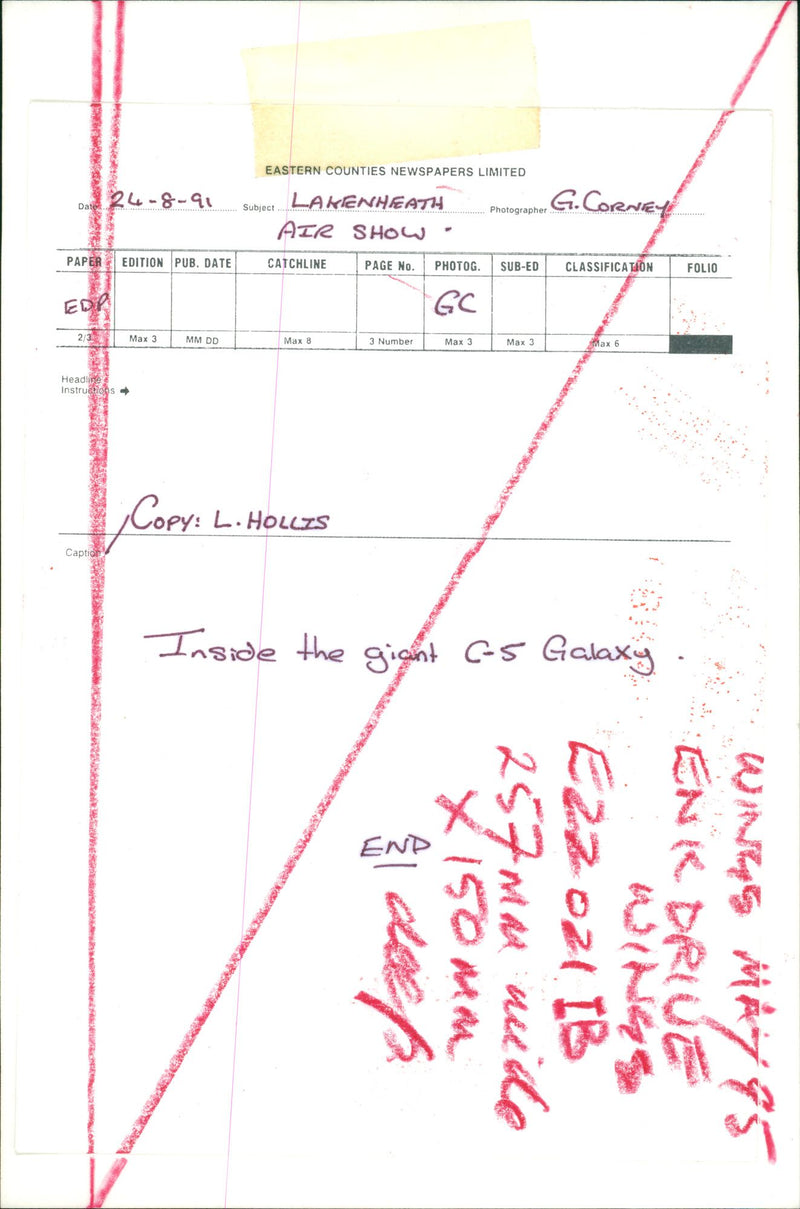 EASTERN COUNTIES NEWSPAPERS LIMITED
Date 24-8-91 Subject LAKENHEATH Photographer G. CORNEY
AIR SHOW.
PAPER EDITION PUB. DATE CATCHLINE PAGE No. PHOTOG. SUB-ED CLASSIFICATION FOLIO
EDP GC
2/3 Max 3 MM DD Max 8 3 Number Max 3 Max 3 Max 6
Headline
Instructions
COPY: L. HOLLIS
Caption
Inside the giant C-5 Galaxy.
END
WINGS MAY 95
DRIVE
WINGS
E22 021 IB
257 MM wide
X 150 MM
deep